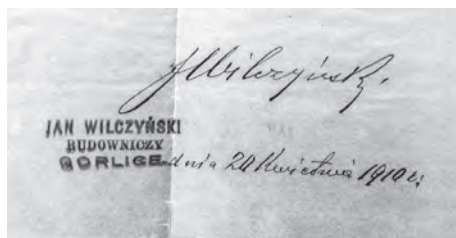 JWilczyński.
JAN WILCZYŃSKI
BUDOWNICZY
GORLICE dnia 20 Kwietnia 1910 r.